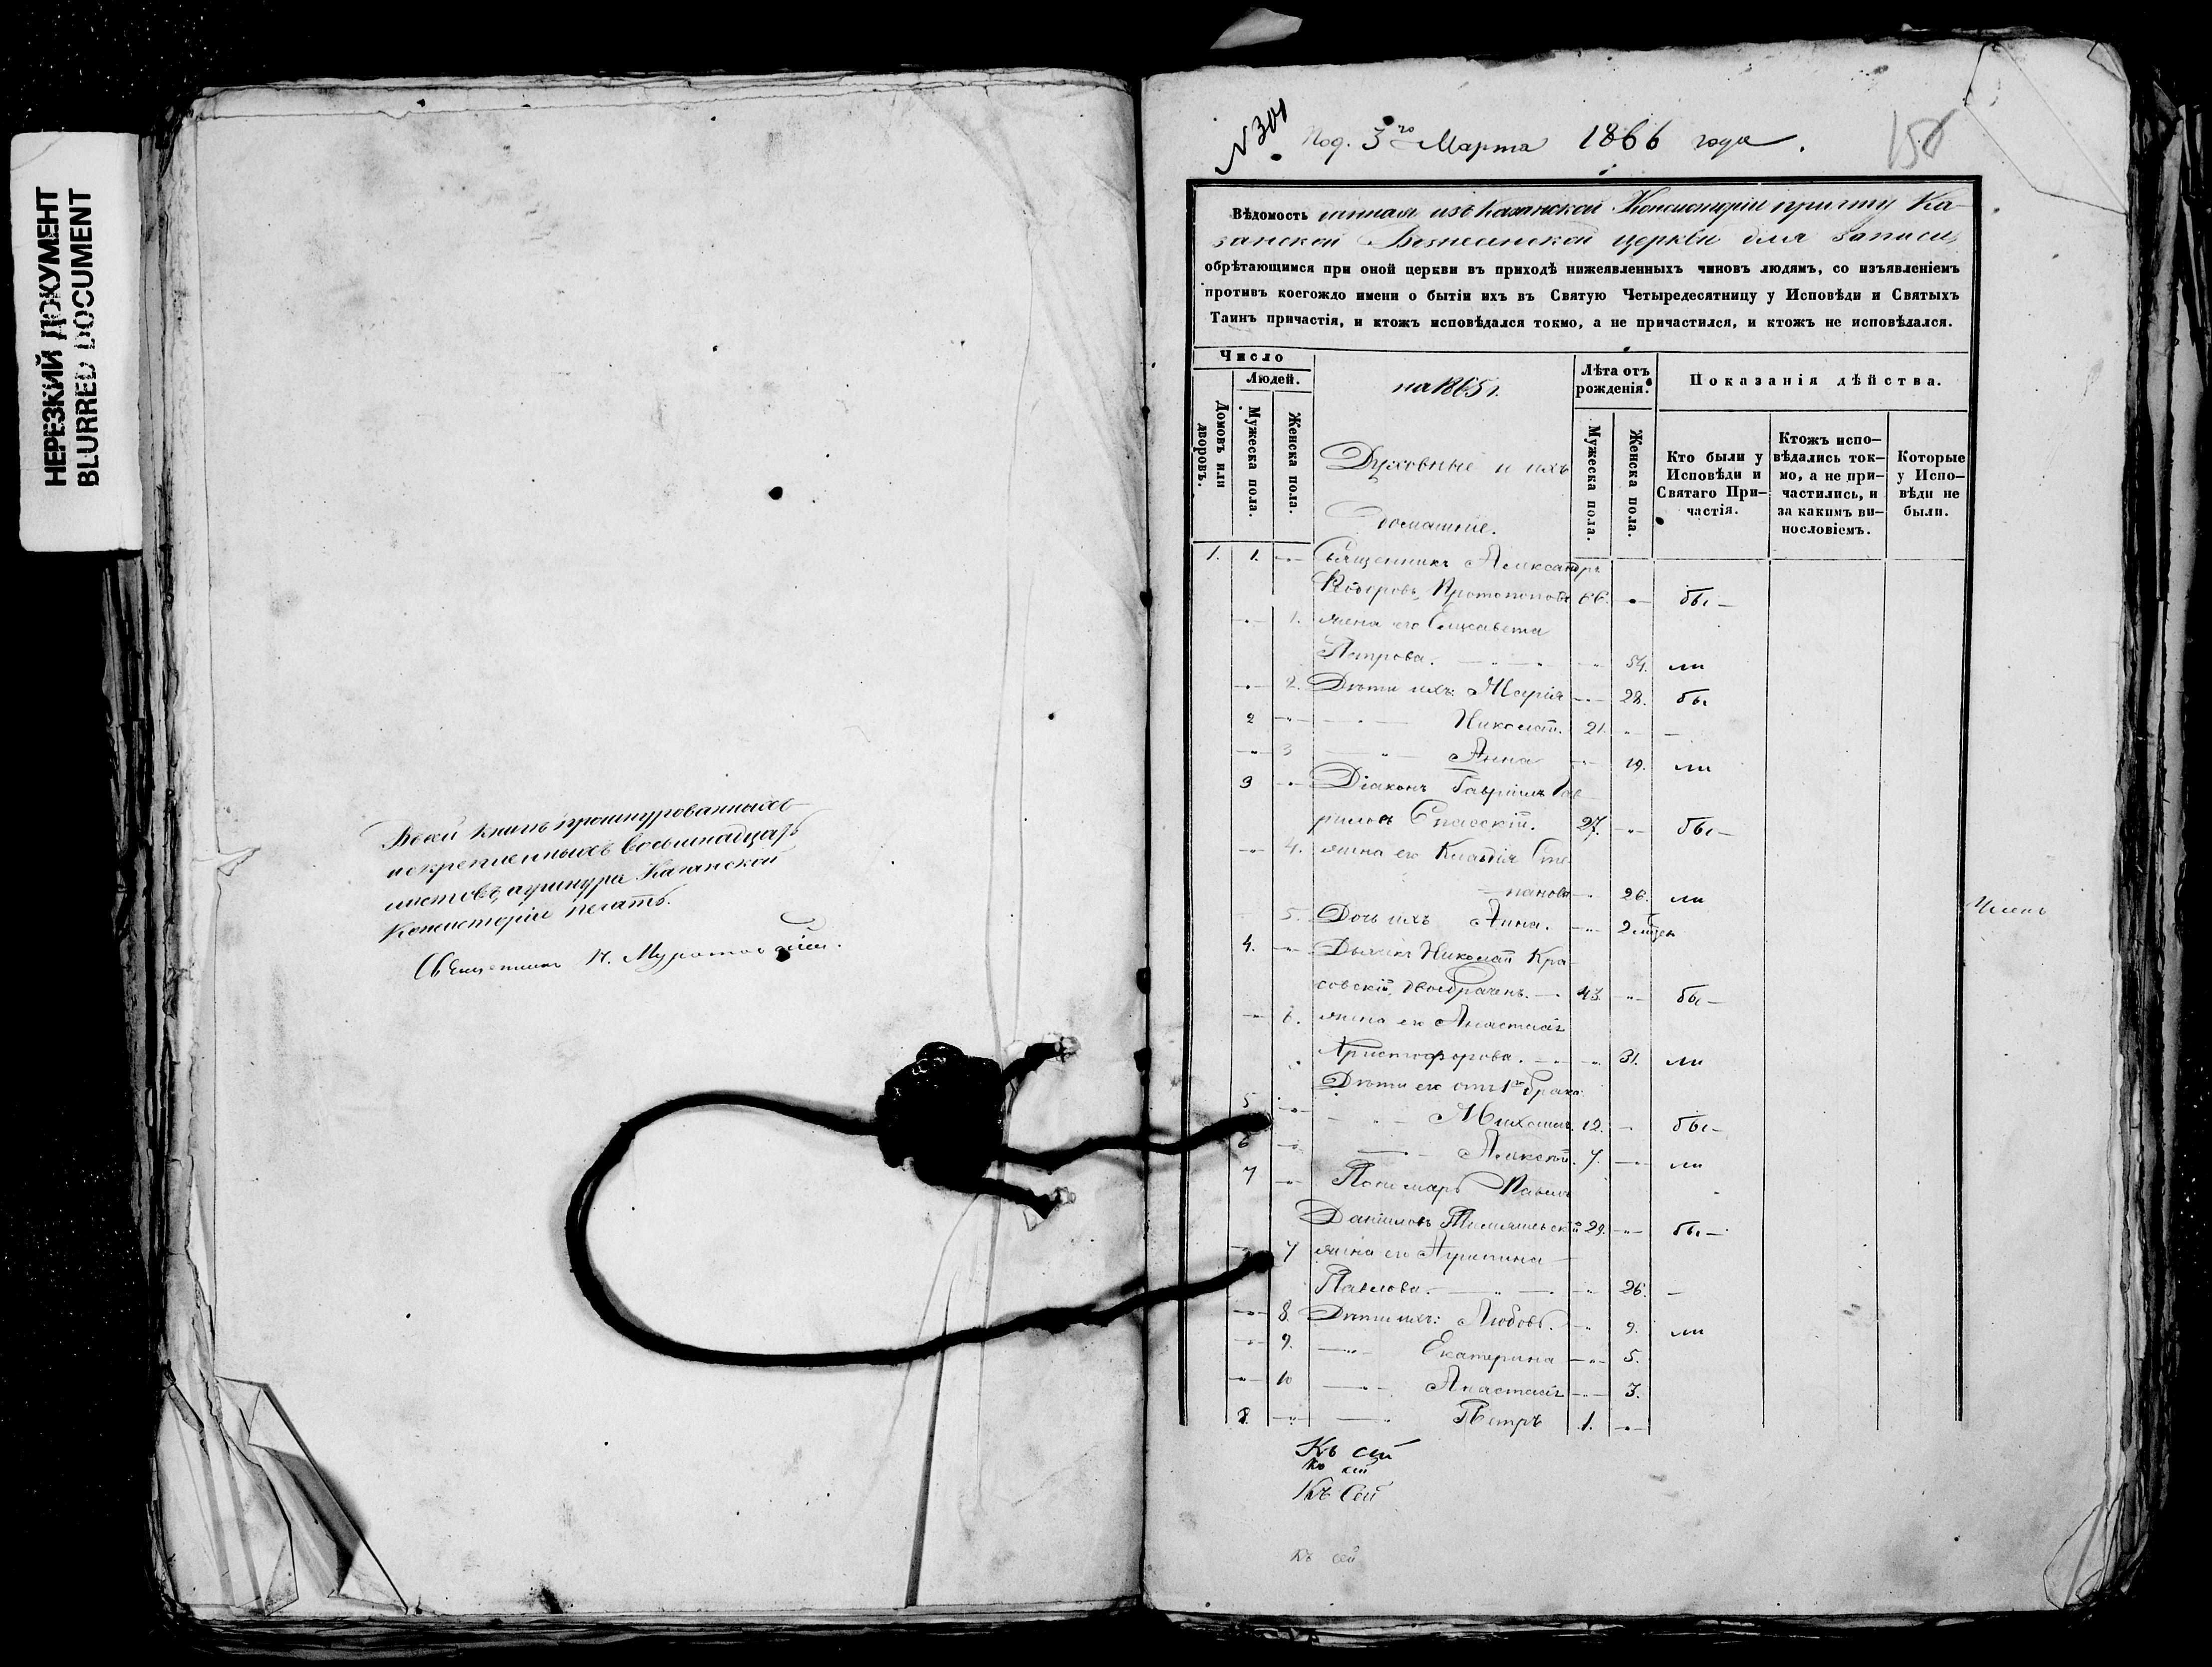 НЕРЕЗКИЙ ДОКУМЕНТ
BLURRED DOCUMENT
Всей книгѣ прошнурованныхъ
и скрепленныхъ восьмнадцать
листовъ, а у шнура Казанской
Консисторіи печать.
Священникъ Н.
№ 301
Под. 3го Марта 1866 года.
Вѣдомость данная изъ Казанской Консисторіи причту Ка-
занской Вознесенской церкви для записи,
обрѣтающимся при оной церкви въ приходѣ нижеявленныхъ чиновъ людямъ, со изъявленіемъ
противъ коегождо имени о бытіи ихъ въ Святую Четыредесятницу у Исповѣди и Святыхъ
Таинъ причастія, и ктожъ исповѣдался токмо, а не причастился, и ктожъ не исповѣдался.
Число
Людей.
Домовъ или дворовъ.
Мужеска пола.
Женска пола.
на 1865 г.
Духовные и ихъ
домашніе.
Лѣта отъ
рожденія.
Мужеска пола.
Женска пола.
Показанія дѣйства.
Кто были у
Исповѣди и
Святаго При-
частія.
Ктожъ испо-
вѣдались ток-
мо, а не при-
частились, и
за какимъ ви-
нословіемъ.
Которые
у Испо-
вѣди не
были.
1. 1. Священникъ Александръ
Ѳедоровъ Протопоповъ 66. бы-
1. жена его Елисавета
Петрова. 54. ли
2. Дѣти ихъ: Марія 22. бы
2 Николай. 21.
3 Анна 19. ли
3 Діаконъ Гавріилъ Гав-
риловъ Спасскій. 27. бы-
4. жена его Клавдія Сте-
панова 26. ли
5. Дочь ихъ Анна. 2
4. Дьячекъ Николай Кра-
совскій, двоебраченъ. 43. бы-
6. жена его Анастасія
Христофорова. 31. ли
Дѣти его отъ 1го брака:
5 Михаилъ. 12. бы-
6 Алексѣй. 7. ли
7 Пономарь Павелъ
Даниловъ 29. бы-
7 жена его
Павлова. 26.
8. Дѣти ихъ: Любовь. 9. ли
9. Екатерина 5.
10 Анастасія 3.
8. Петръ 1.
Къ сей
Къ сей
Къ Сей
Къ сей